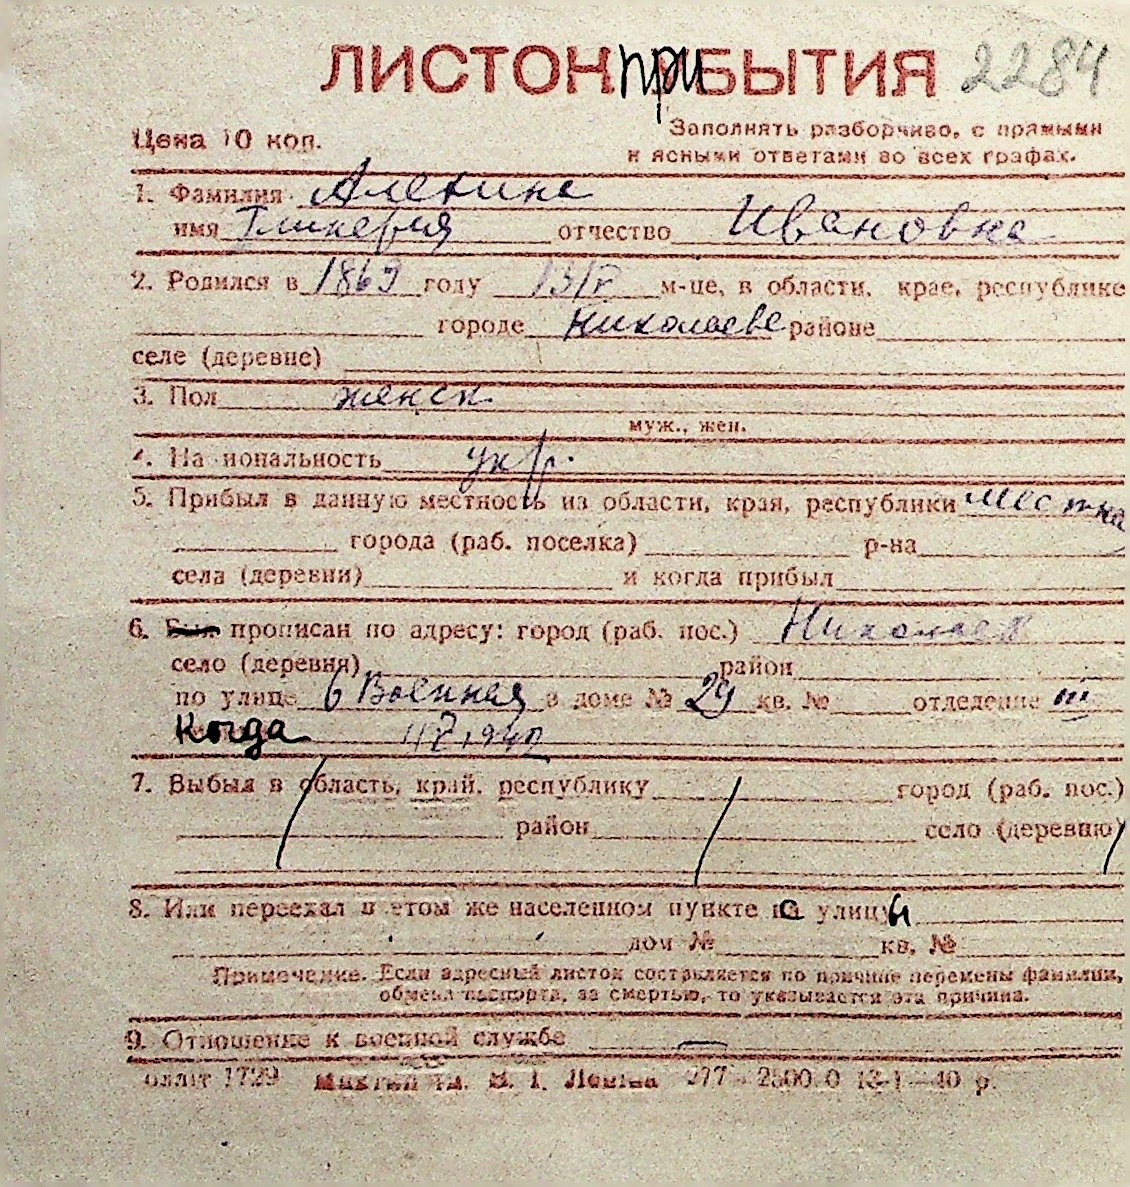 ЛИСТОК ПРИБЫТИЯ 2284
Цена 10 коп.
Заполнять разборчиво, с прямыми
и ясными ответами во всех графах.
1. Фамилия Алехина
имя Гликерия отчество Ивановна
2. Родился в 1869 году 13/V м-це, в области, крае, республике
городе Николаеве районе
селе (деревне)
3. Пол женск
муж., жен.
4. Национальность укр.
5. Прибыл в данную местность из области, края, республики местная
города (раб. поселка) р-на
села (деревни) и когда прибыл
6. Был прописан по адресу: город (раб. пос.) Николаев
село (деревня) район
по улице 6 Военная в доме № 29 кв. № отделение III
Когда 1942
7. Выбыл в область, край, республику город (раб. пос.)
район село (деревню)
8. Или переехал в етом же населенном пункте с улицы
дом № кв. №
Примечание. Если адресный листок составляется по причине перемены фамилии,
обмена паспорта, за смертью, то указывается эта причина.
9. Отношение к военной службе —
оллит 1729 им. В. І. Леніна 277 - 2500.0 13-1-40 р.